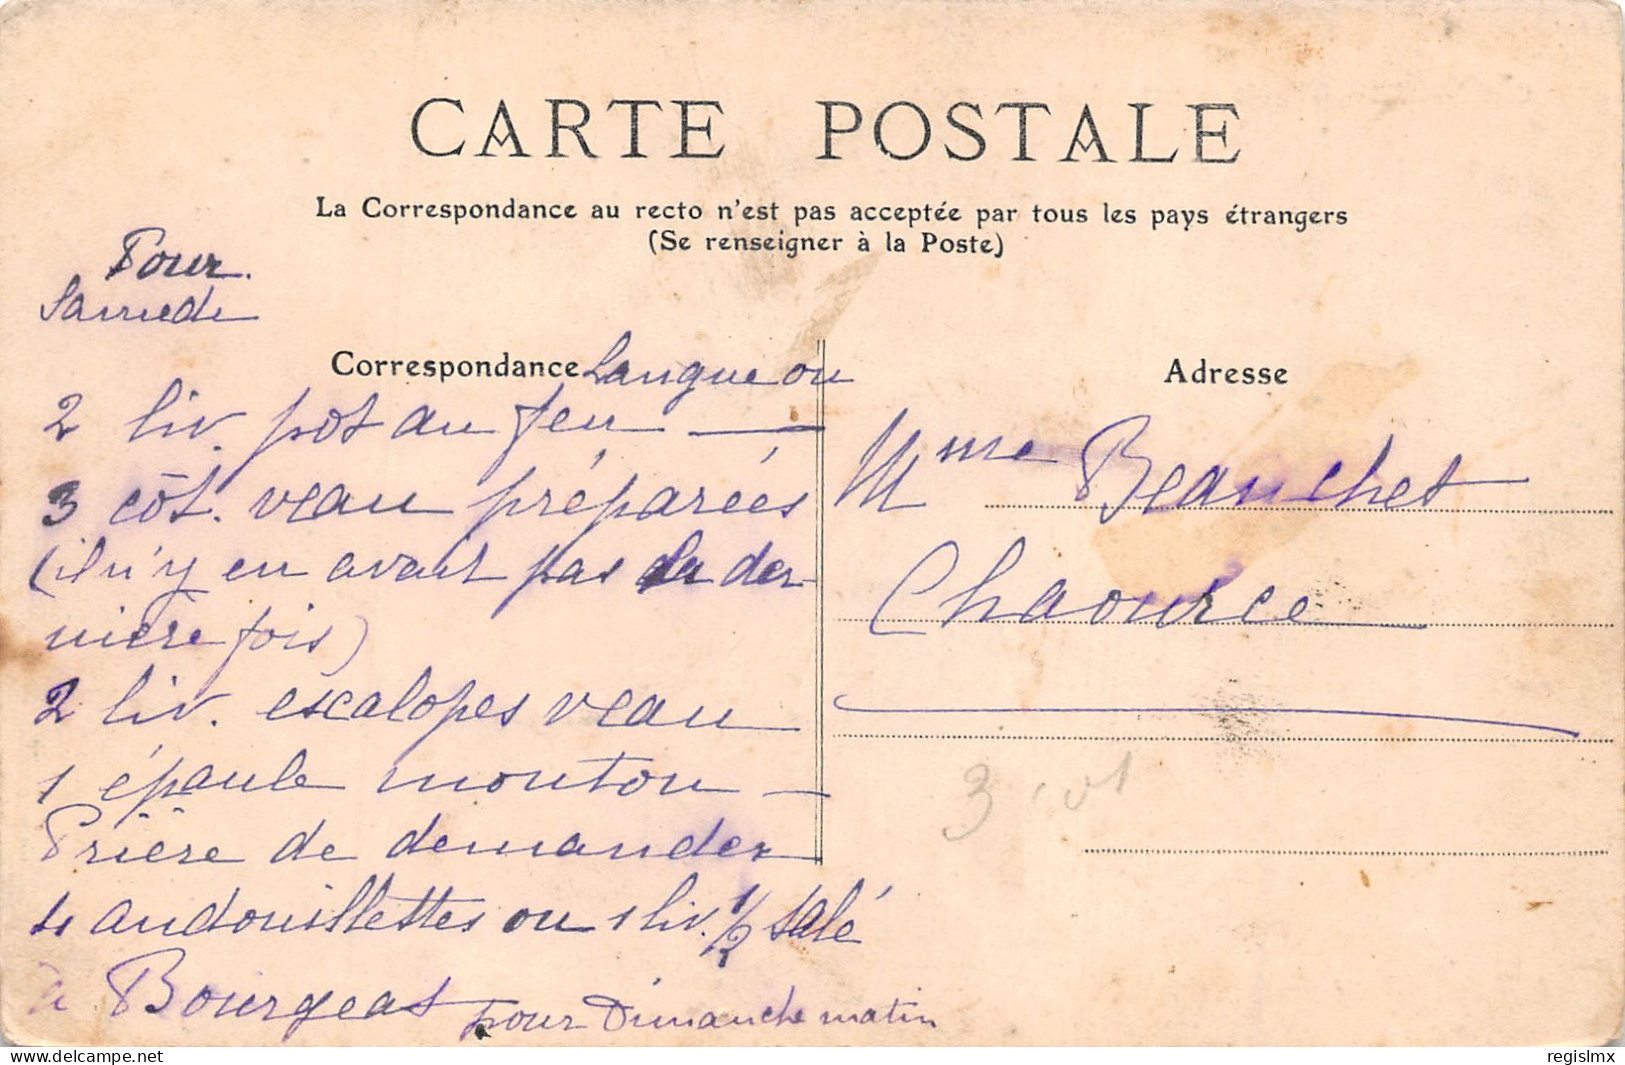 CARTE POSTALE
La Correspondance au recto n'est pas acceptée par tous les pays étrangers
(Se renseigner à la Poste)
Pour
Samedi
Correspondance
Langue ou
2 liv. pot au feu —
3 côt. veau préparées
(il n'y en avait pas la der-
nière fois)
2 liv. escalopes veau
1 épaule mouton —
Prière de demander
4 andouillettes ou 1 liv. 1/2 salé
à Bourgeat pour Dimanche matin
Adresse
Mme Beauchet
Chaource
3
delcampe.net
regislmx